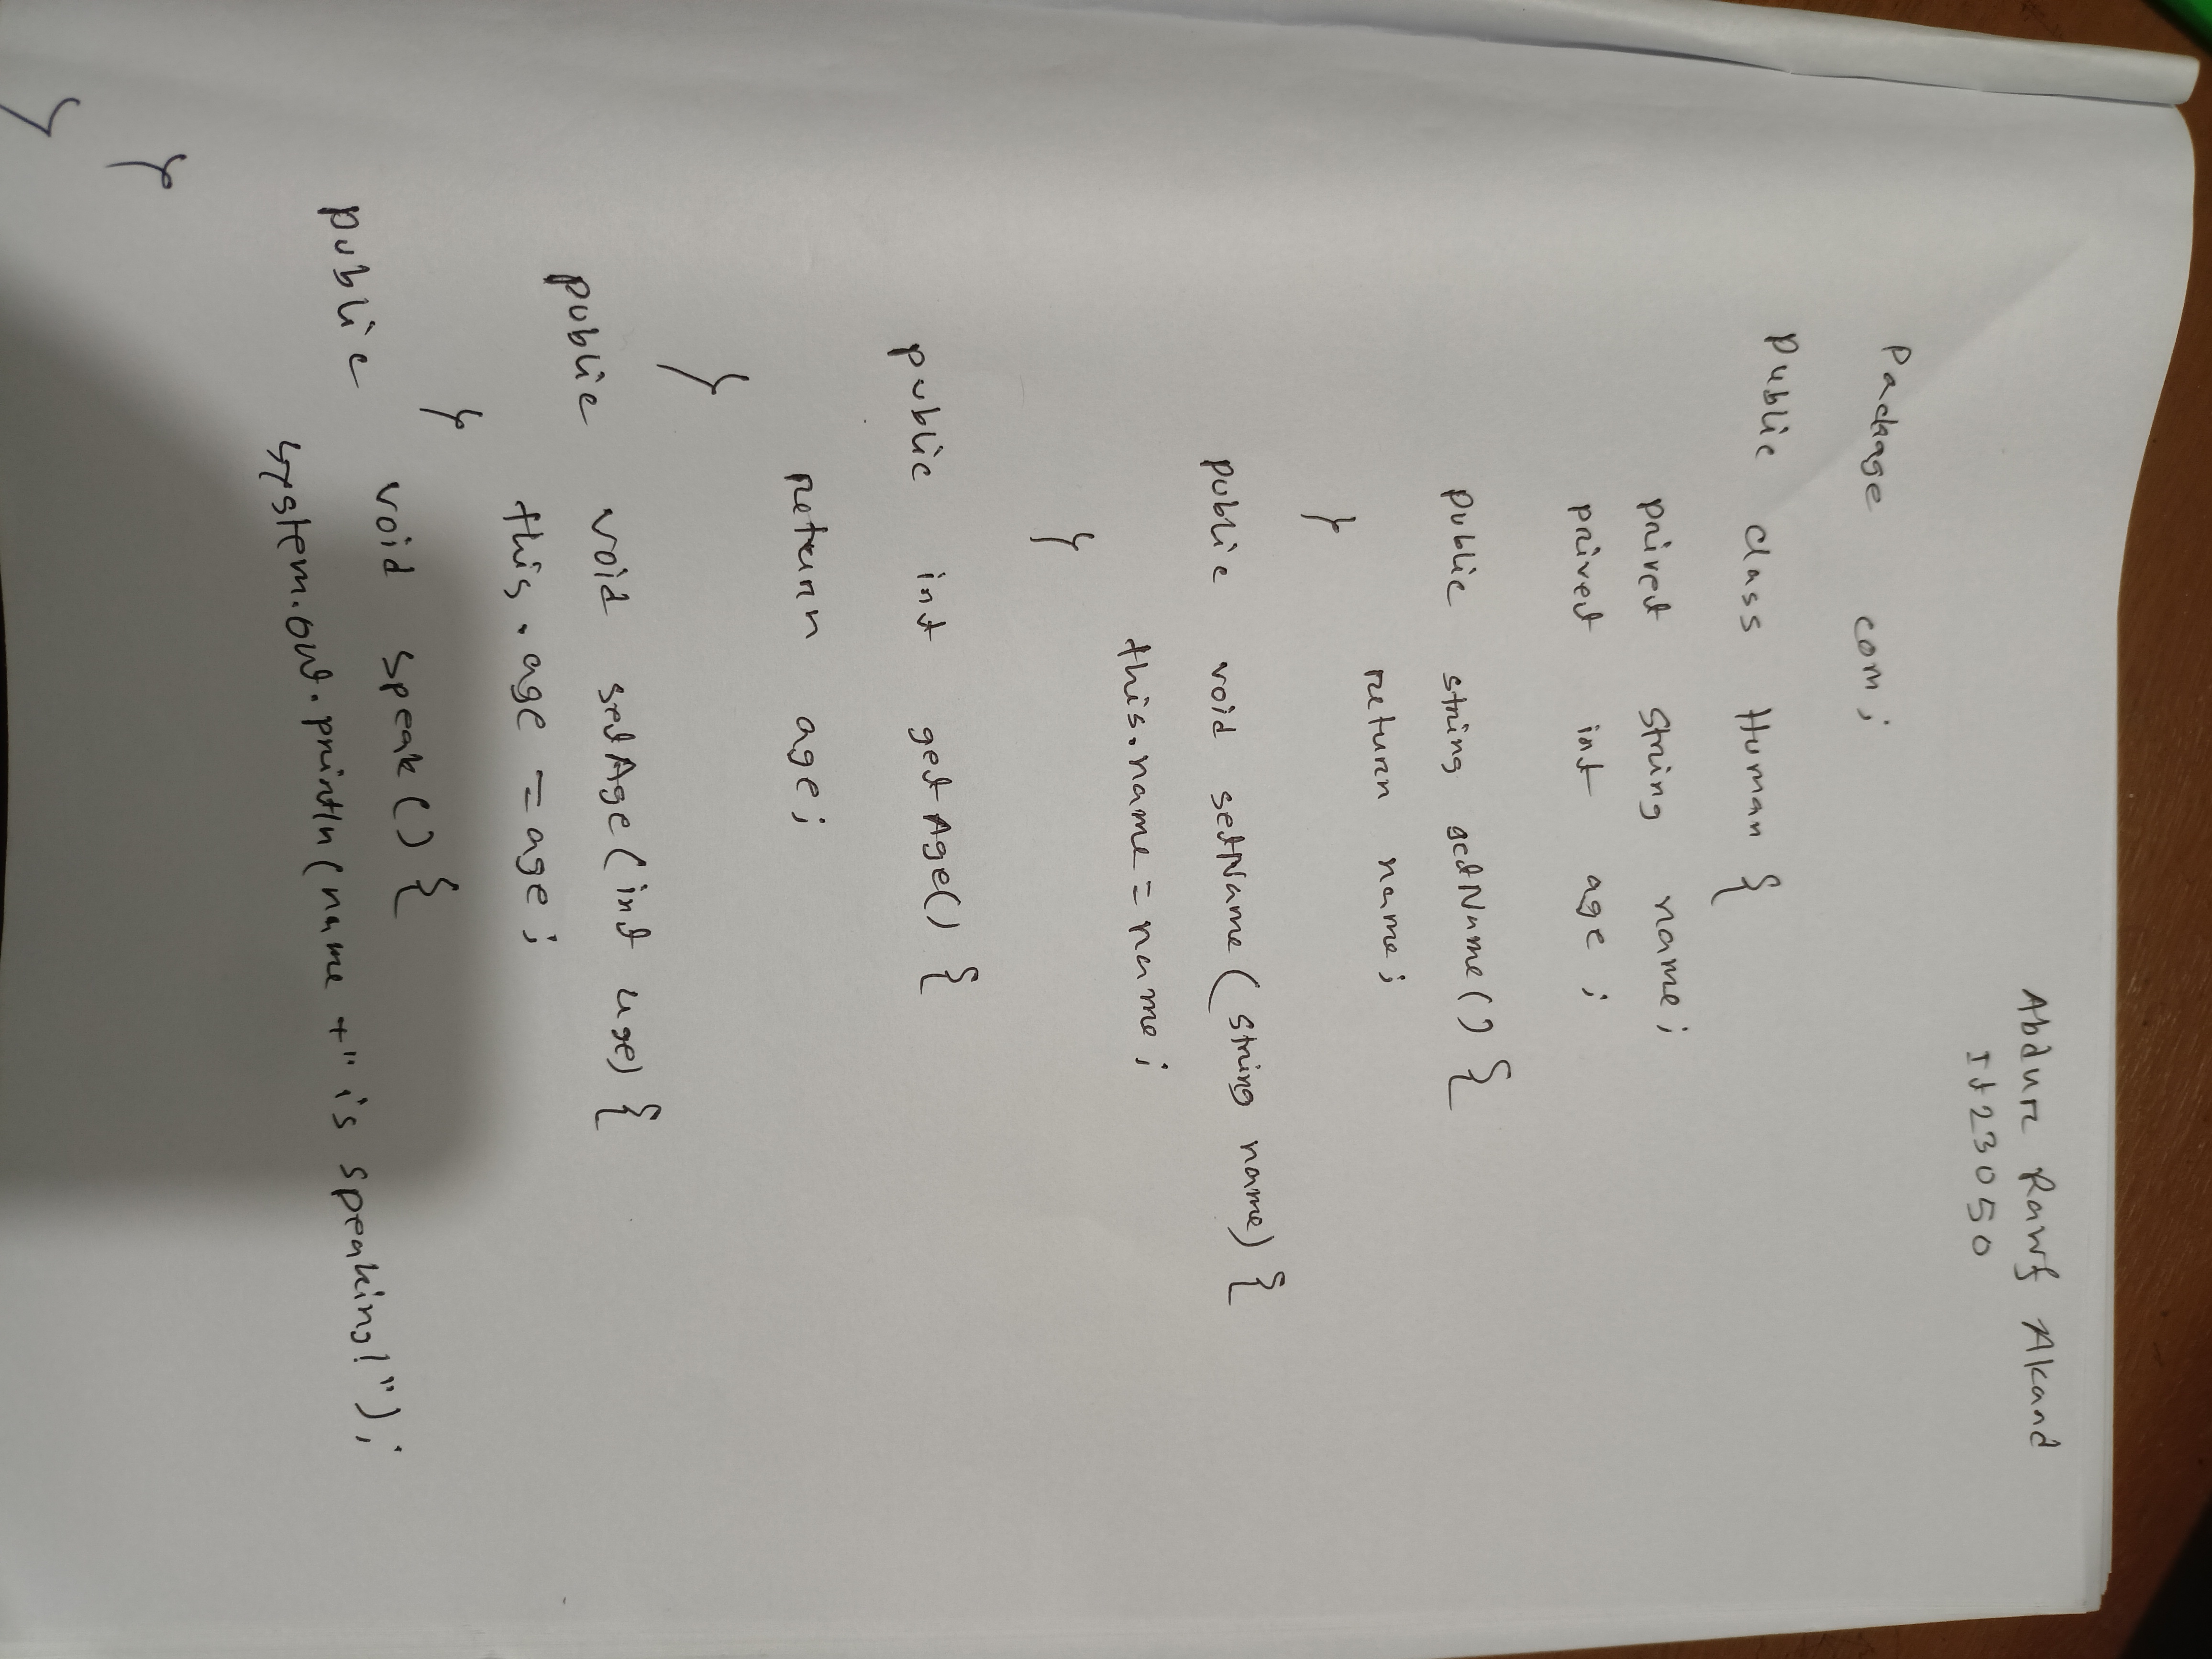 Abdur Rawf Akand
It23050
Package com;
public class Human {
privet string name;
privet int age;
public string getName() {
return name;
}
public void setName(string name) {
this.name = name;
}
public int getAge() {
return age;
}
public void setAge(int age) {
this.age = age;
}
public void speak() {
system.out.println(name +" is speaking!");
}
}